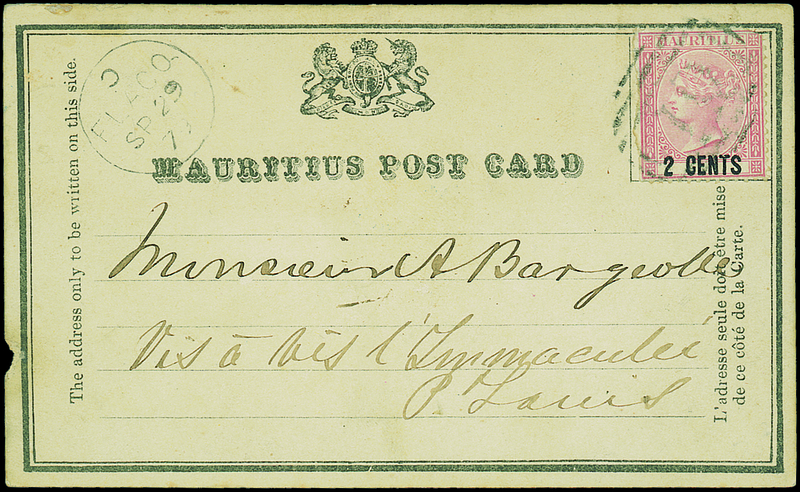 FLACQ
SP 29
MAURITIUS
2 CENTS
MAURITIUS POST CARD
The address only to be written on this side.
Monsieur A Bargeolle
Vis à Vis l'Immaculée
P. Louis
L'adresse seule doit être mise
de ce côté de la Carte.